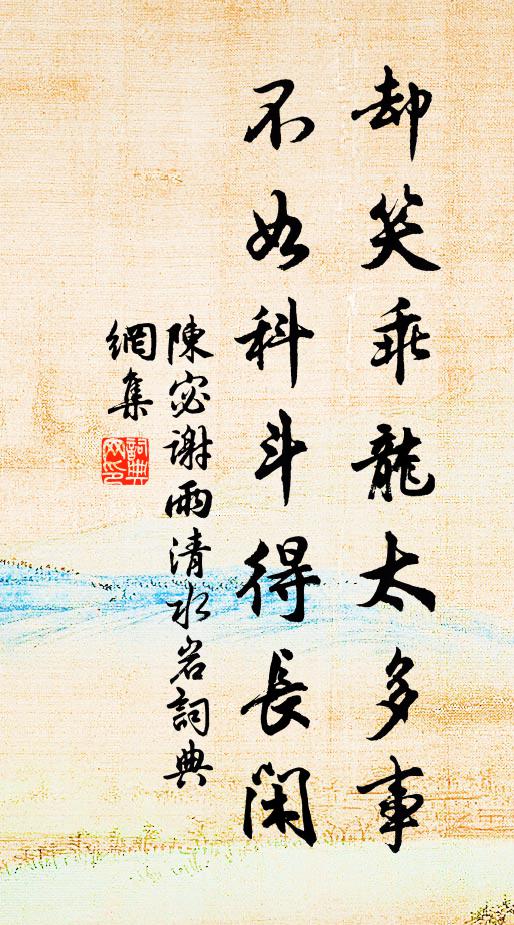 却笑乖龍太多事
不如科斗得長閑
陳宓謝雨清水岩詞典
網集
詞典
网印